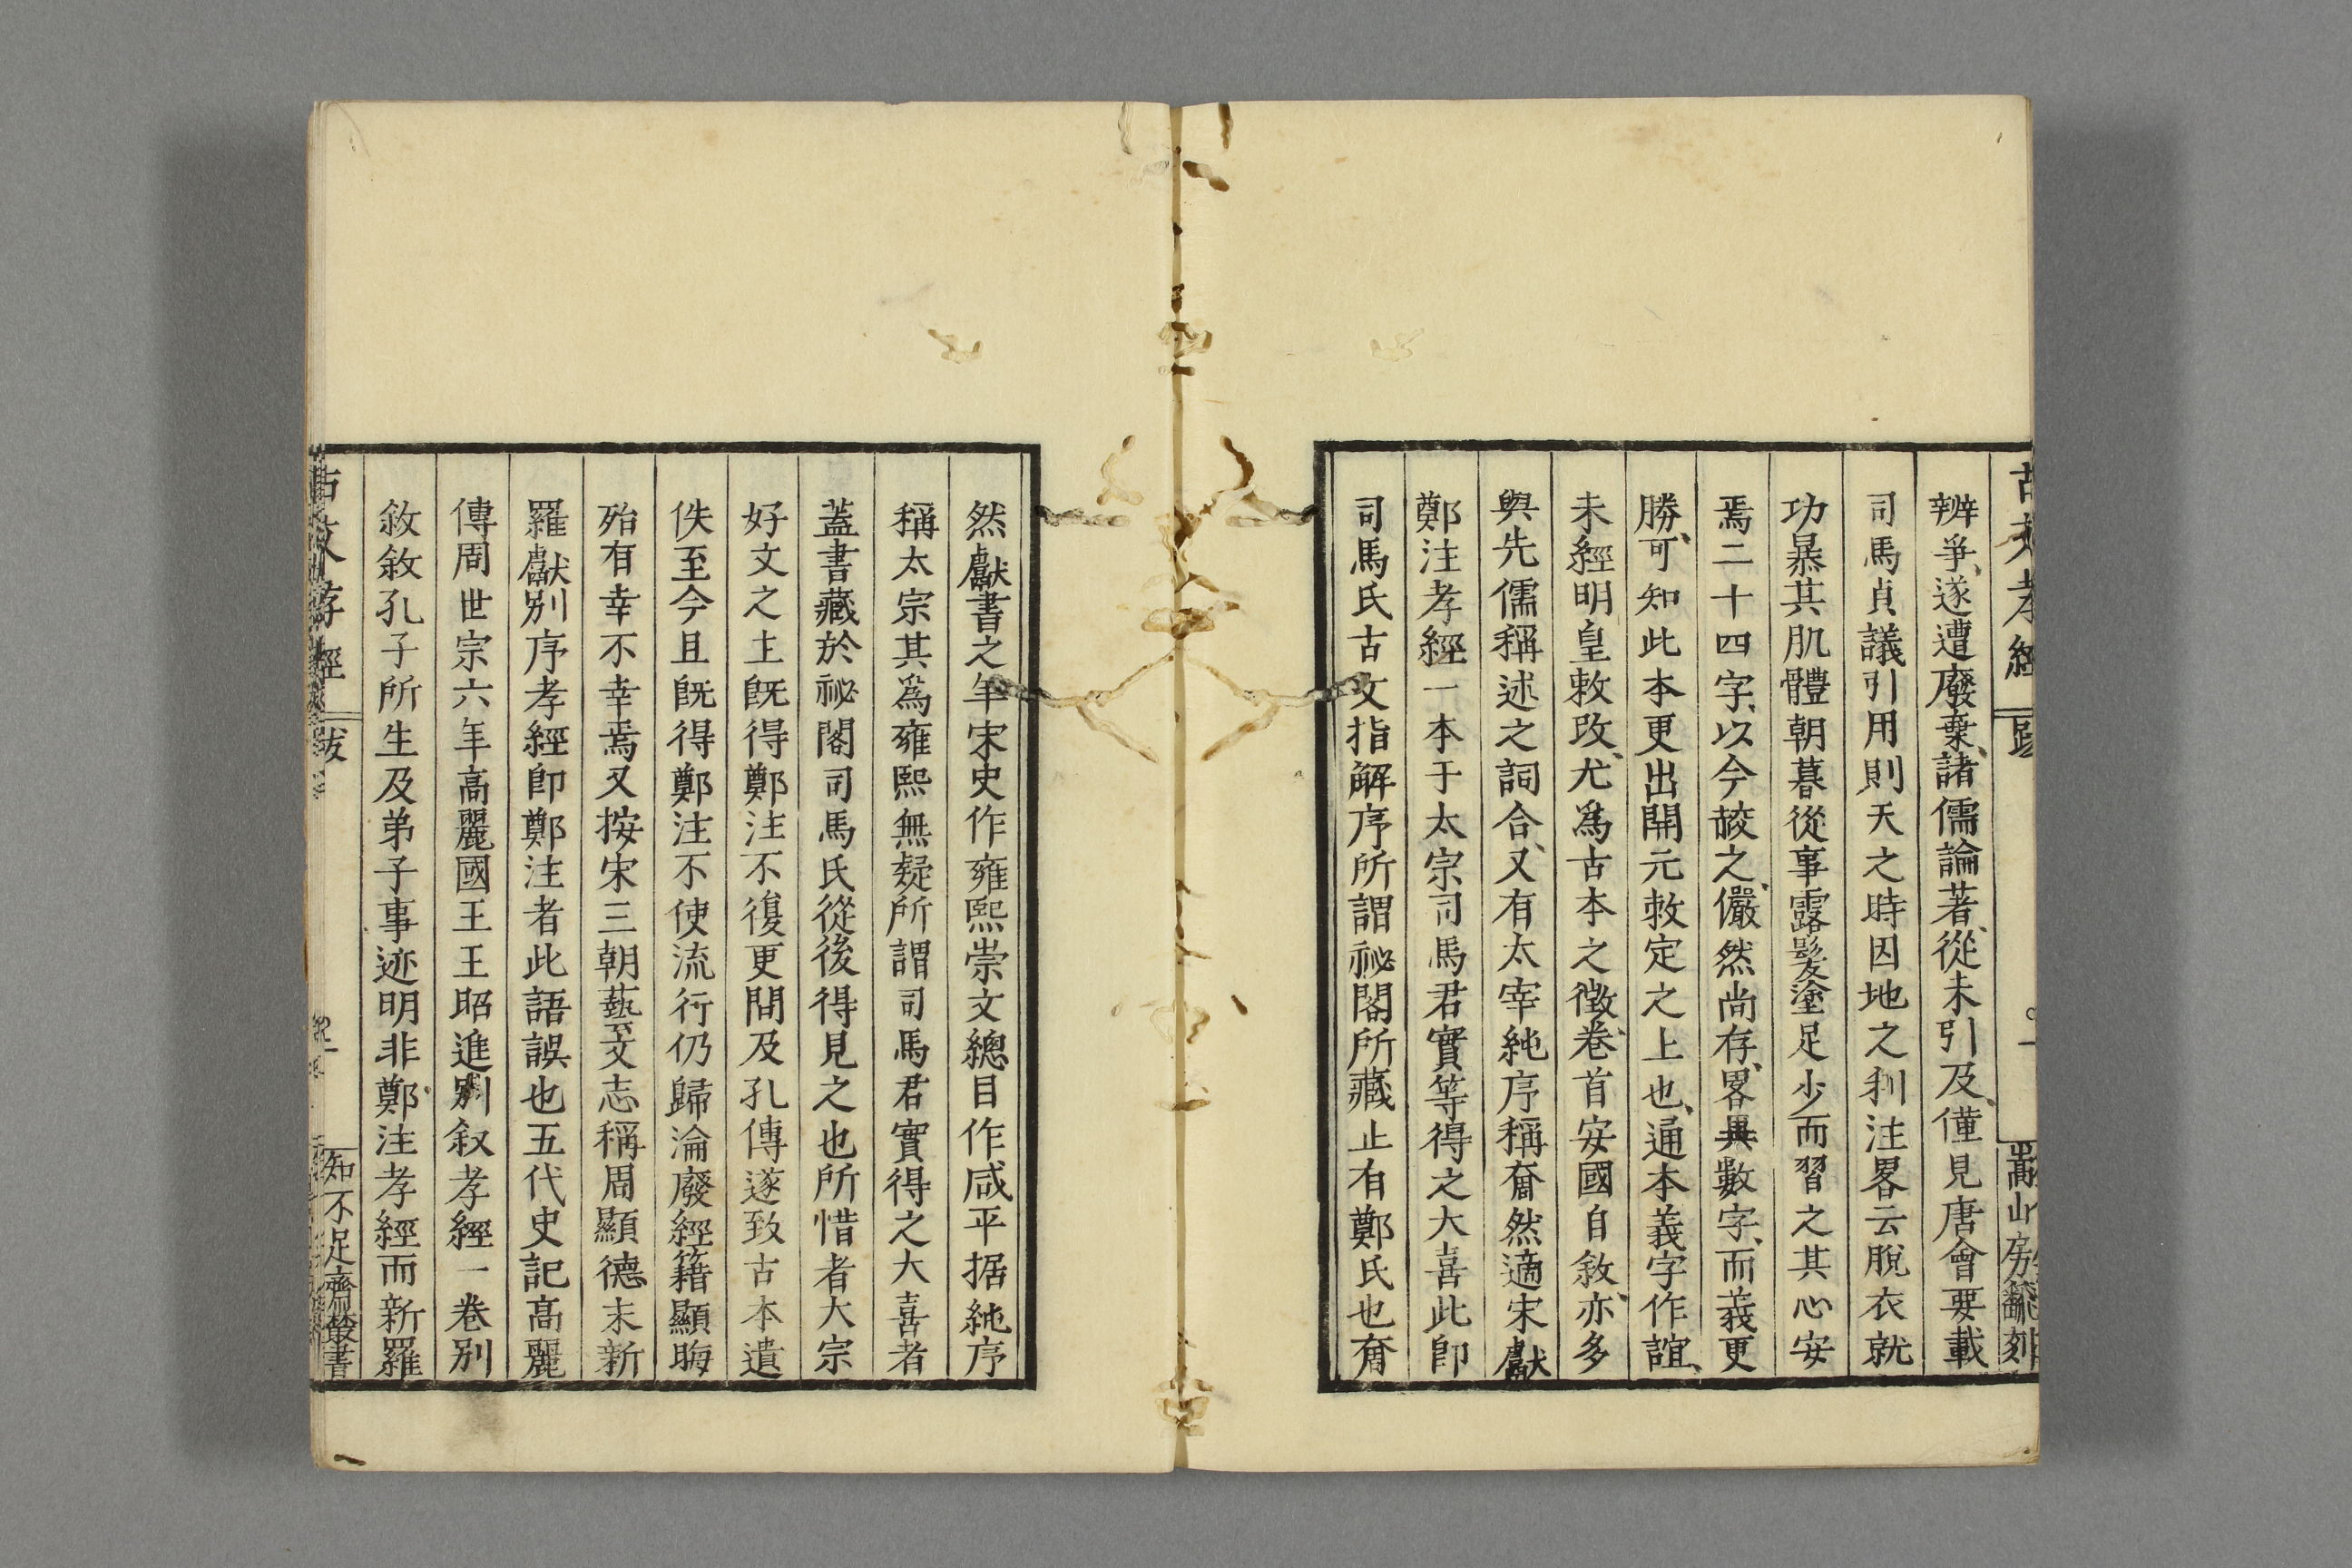 古文孝經 跋 一 嵩山房翻刻
辨爭、遂遭廢棄、諸儒論著、從未引及、僅見唐會要載
司馬貞議引用則天之時因地之利注畧云脫衣就
功暴其肌體朝暮從事露髮塗足少而習之其心安
焉二十四字、以今較之、儼然尚存、畧異數字、而義更
勝、可知此本更出開元敕定之上也、通本義字作誼、
未經明皇敕改、尤爲古本之徵、卷首安國自敘、亦多
與先儒稱述之詞合、又有太宰純序稱奝然適宋獻
鄭注孝經一本于太宗司馬君實等得之大喜此即
司馬氏古文指解序所謂祕閣所藏止有鄭氏也奝
然獻書之年宋史作雍熙崇文總目作咸平据純序
稱太宗其爲雍熙無疑所謂司馬君實得之大喜者
蓋書藏於祕閣司馬氏從後得見之也所惜者大宗
好文之主旣得鄭注不復更問及孔傳遂致古本遺
佚至今且旣得鄭注不使流行仍歸淪廢經籍顯晦
殆有幸不幸焉又按宋三朝藝文志稱周顯德末新
羅獻別序孝經卽鄭注者此語誤也五代史記高麗
傳周世宗六年高麗國王王昭進別叙孝經一卷別
敘敘孔子所生及弟子事迹明非鄭注孝經而新羅
古文孝經 跋 知不足齋叢書